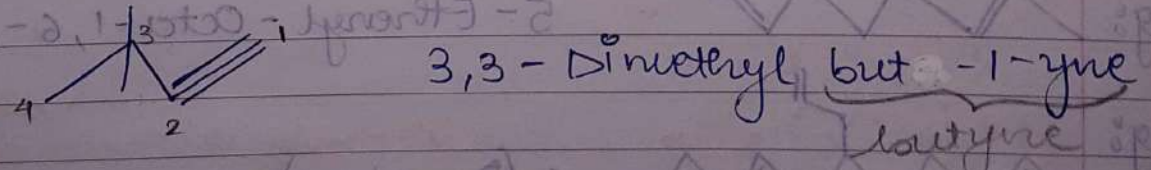 3
1
3,3 - Dimethyl but -1-yne
4
2
butyne